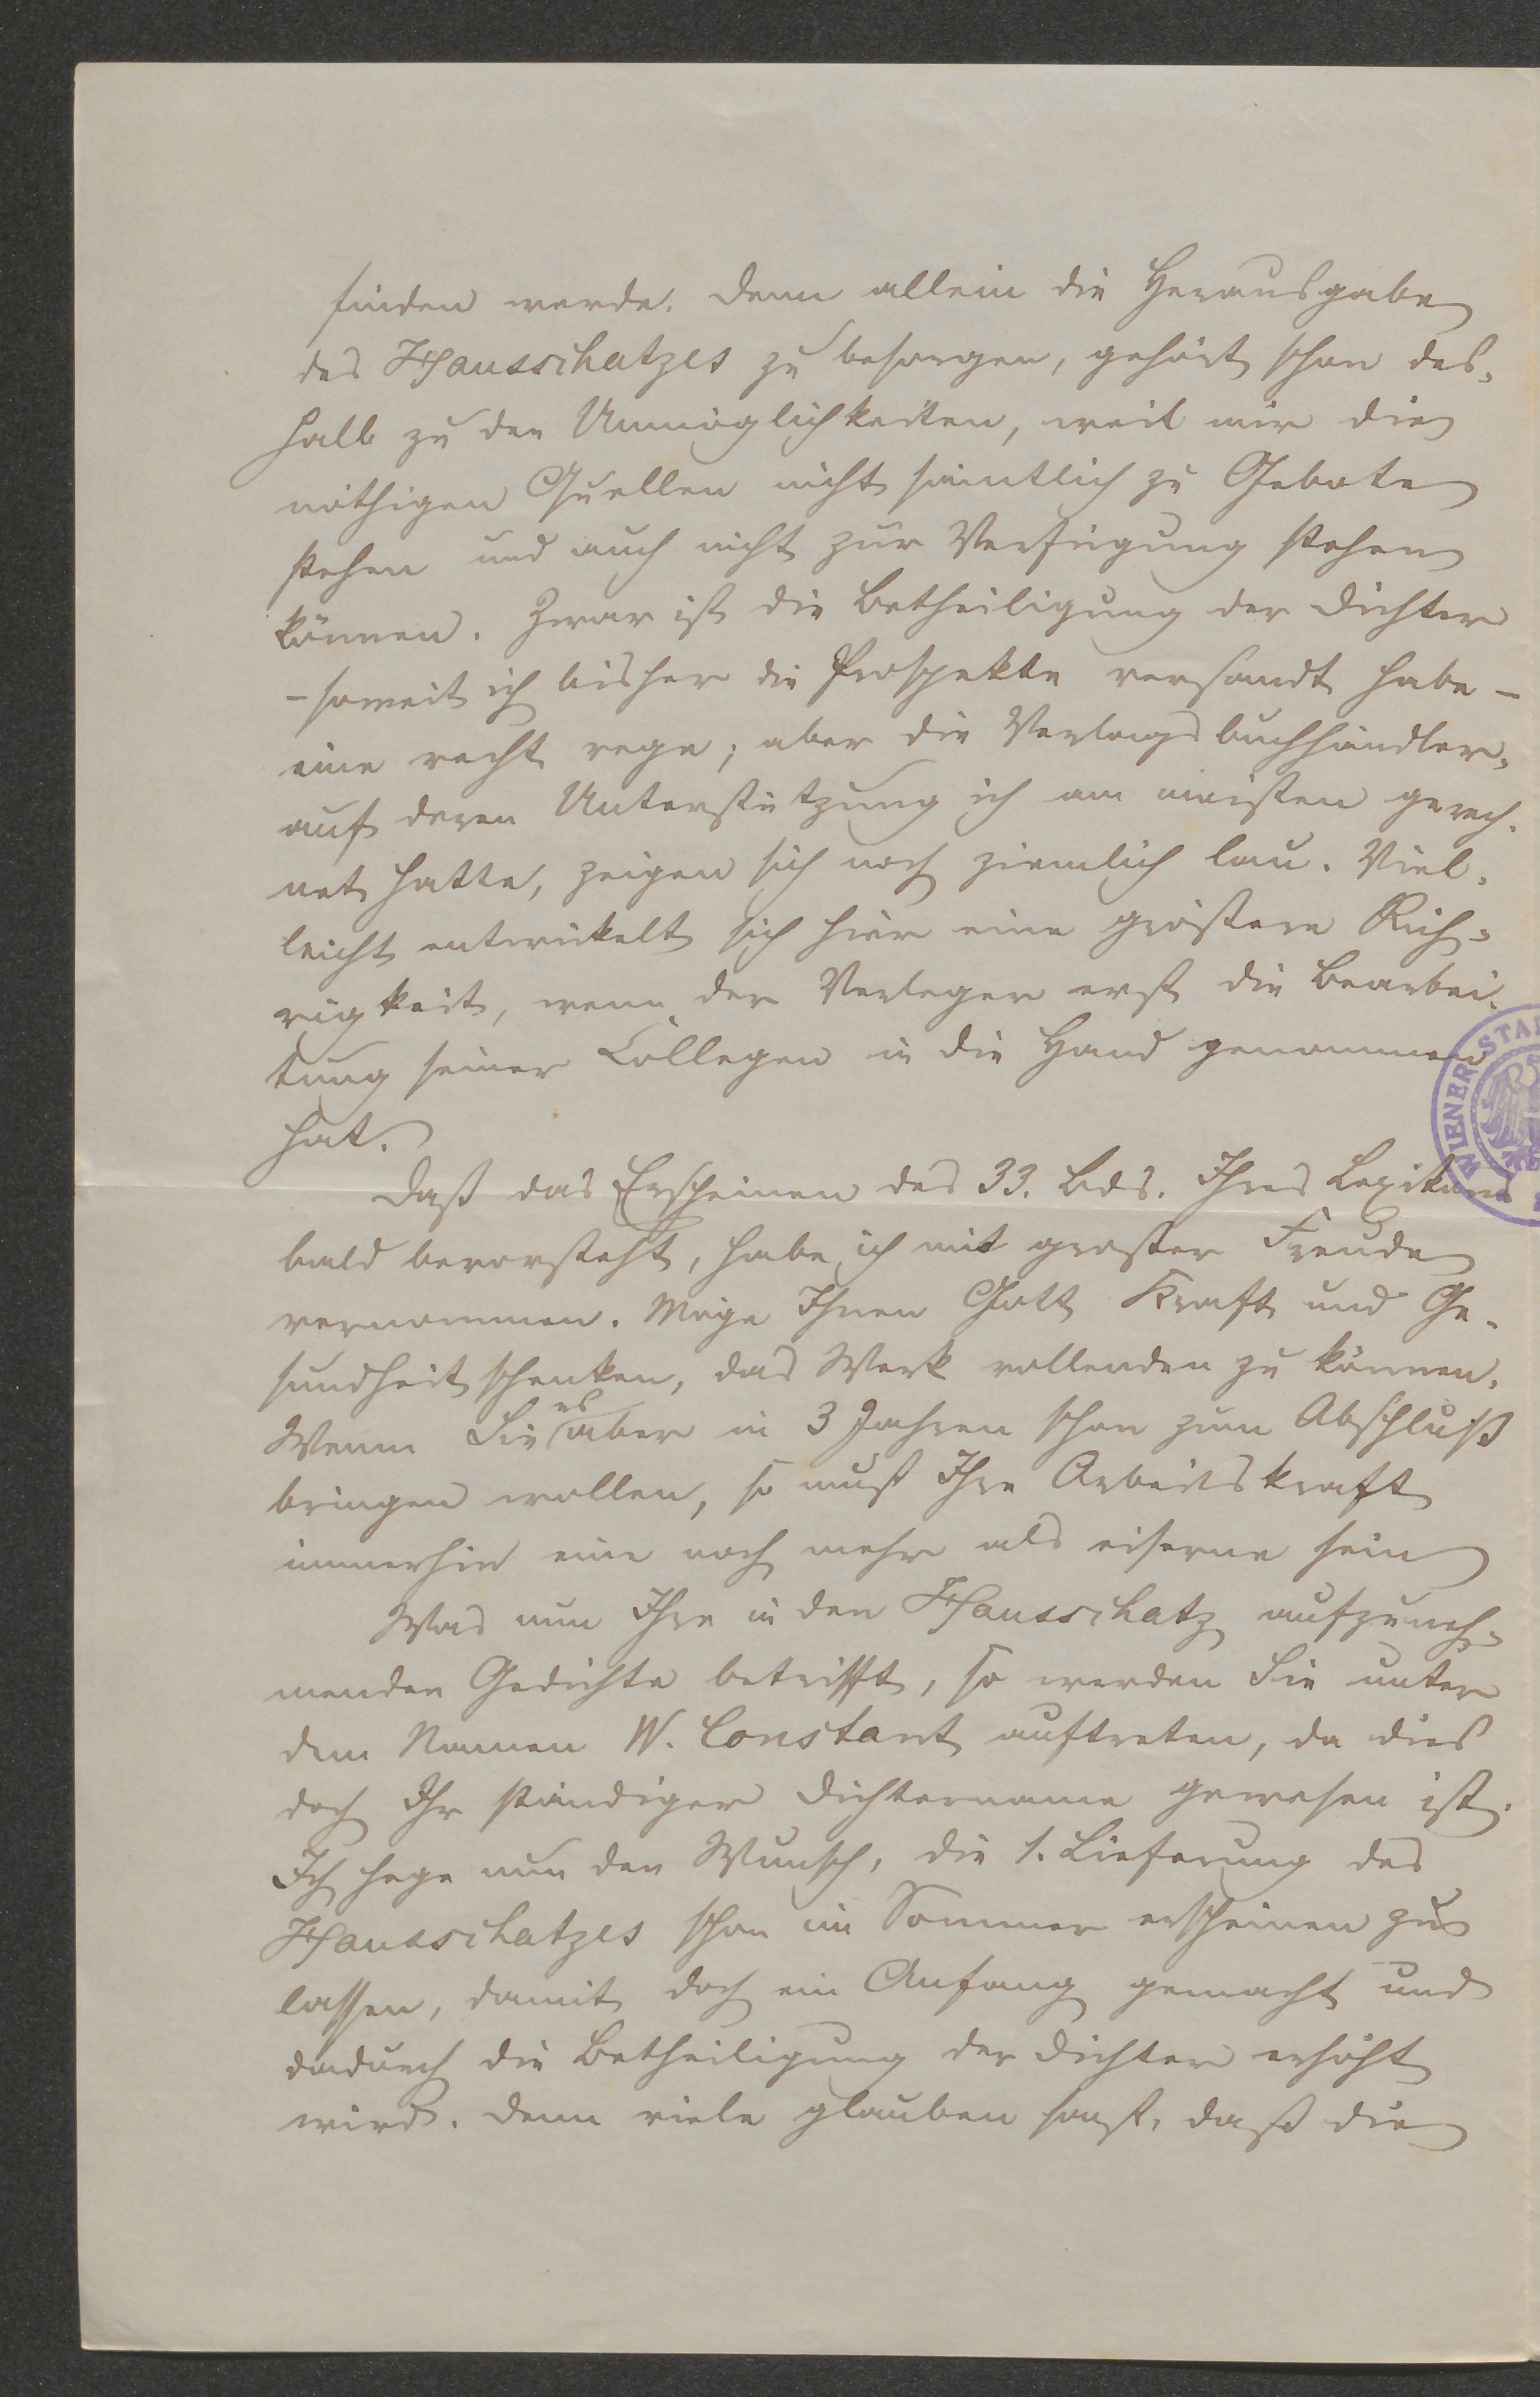 finden werde. Denn allein die Herausgabe
des Hausschatzes zu besorgen, gehört schon des-
halb zu den Unmöglichkeiten, weil mir die
nöthigen Quellen nicht sämtlich zu Gebote
stehen und auch nicht zur Verfügung stehen
können. Zwar ist die Betheiligung der Dichter
- soweit ich bisher die Prospekte versandt habe -
eine recht rege; aber die Verlagsbuchhändler,
auf deren Unterstützung ich am meisten gerech-
net hatte, zeigen sich noch ziemlich lau. Viel-
leicht entwickelt sich hier eine größere Rüh-
rigkeit, wenn der Verleger erst die Bearbei-
tung seiner Collegen in die Hand genommen
hat.
Daß das Erscheinen des 33. Bds. Ihres Lexikons
bald bevorsteht, habe ich mit großer Freude
vernommen. Möge Ihnen Gott Kraft und Ge-
sundheit schenken, das Werk vollenden zu können.
Wenn Sie es aber in 3 Jahren schon zum Abschluß
bringen wollen, so muß Ihre Arbeitskraft
immerhin eine noch mehr als eiserne sein
Was nun Ihre in den Hausschatz aufzuneh-
menden Gedichte betrifft, so werden Sie unter
dem Namen W. Constant auftreten, da dies
doch Ihr ständiger Dichtername gewesen ist.
Ich hege nun den Wunsch, die 1. Lieferung des
Hausschatzes schon im Sommer erscheinen zu
lassen, damit doch ein Anfang gemacht und
dadurch die Betheiligung der Dichter erhöht
wird. Denn viele glauben sonst, daß die
WIENER STA